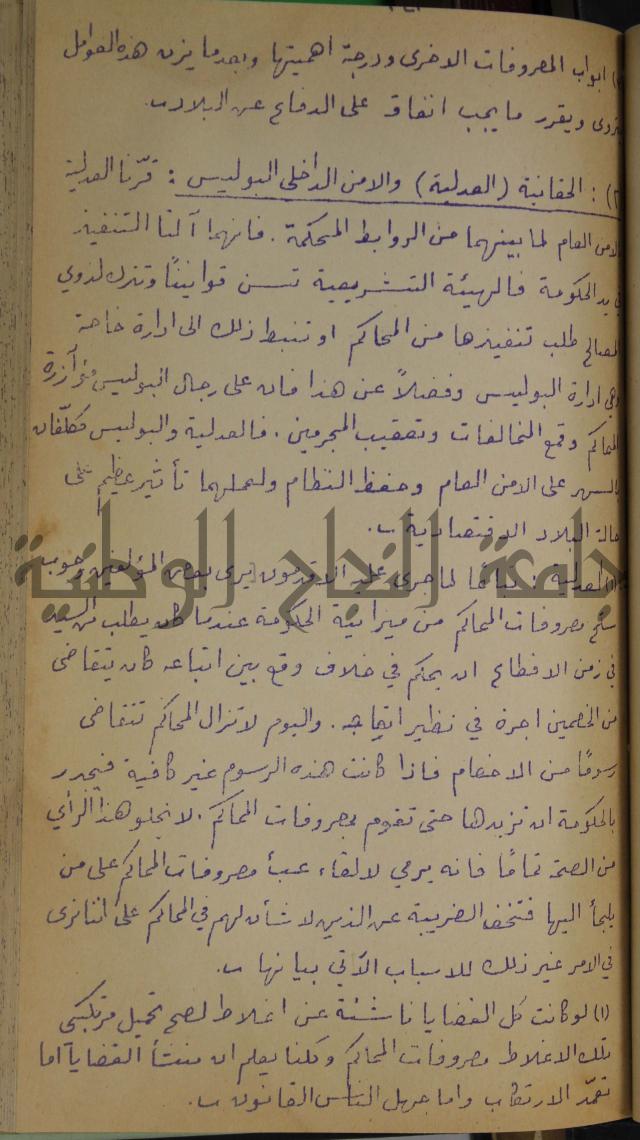 ابواب المصروفات الاخرى ودرجة اهميتها وبعدما يزن هذه العوامل
يتروى ويقرر ما يجب انفاقه على الدفاع عن البلاد.
: الحقانية (العدلية) والامن الداخلي البوليس : قرنّا العدلية
الامن العام لما بينهما من الروابط المحكمة. فانهما آلتا التنفيذ
في يد الحكومة فالهيئة التشريعية تسن قوانينًا وتترك لذوي
المصالح طلب تنفيذها من المحاكم او تنيط ذلك الى ادارة خاصة
وهي ادارة البوليس وفضلاً عن هذا فان على رجال البوليس مؤازرة
المحاكم وقمع المخالفات وتعقيب المجرمين. فالعدلية والبوليس مكلّفان
بالسهر على الامن العام وحفظ النظام ولعملهما تأثير عظيم على
حالة البلاد الاقتصادية.
العدلية : تباعًا لما جرى عليه الاقدمون يرى بعض المؤلفين وجوب
سلخ مصروفات المحاكم من ميزانية الحكومة عندما كان يطلب من السيد
في زمن الاقطاع ان يحكم في خلاف وقع بين اتباعه كان يتقاضى
من الخصمين اجرة في نظير اتعابه. واليوم لا تزال المحاكم تتقاضى
رسومًا من الاخصام فاذا كانت هذه الرسوم غير كافية فيجدر
بالحكومة ان تزيدها حتى تقوم بمصروفات المحاكم. لا يخلو هذا الرأي
من الصحة تمامًا فانه يرمي لالقاء عبئ مصروفات المحاكم على من
يلجأ اليها فتخف الضريبة عن الذين لا شأن لهم في المحاكم على اننا نرى
في الامر غير ذلك للاسباب الآتي بيانها
(١) لو كانت كل القضايا ناشئة عن اغلاط لصح تحميل مرتكبي
تلك الاغلاط مصروفات المحاكم وكلنا يعلم ان منشأ القضايا اما
تعمّد الارتكاب واما جهل الناس القانون
جامعة النجاح الوطنية